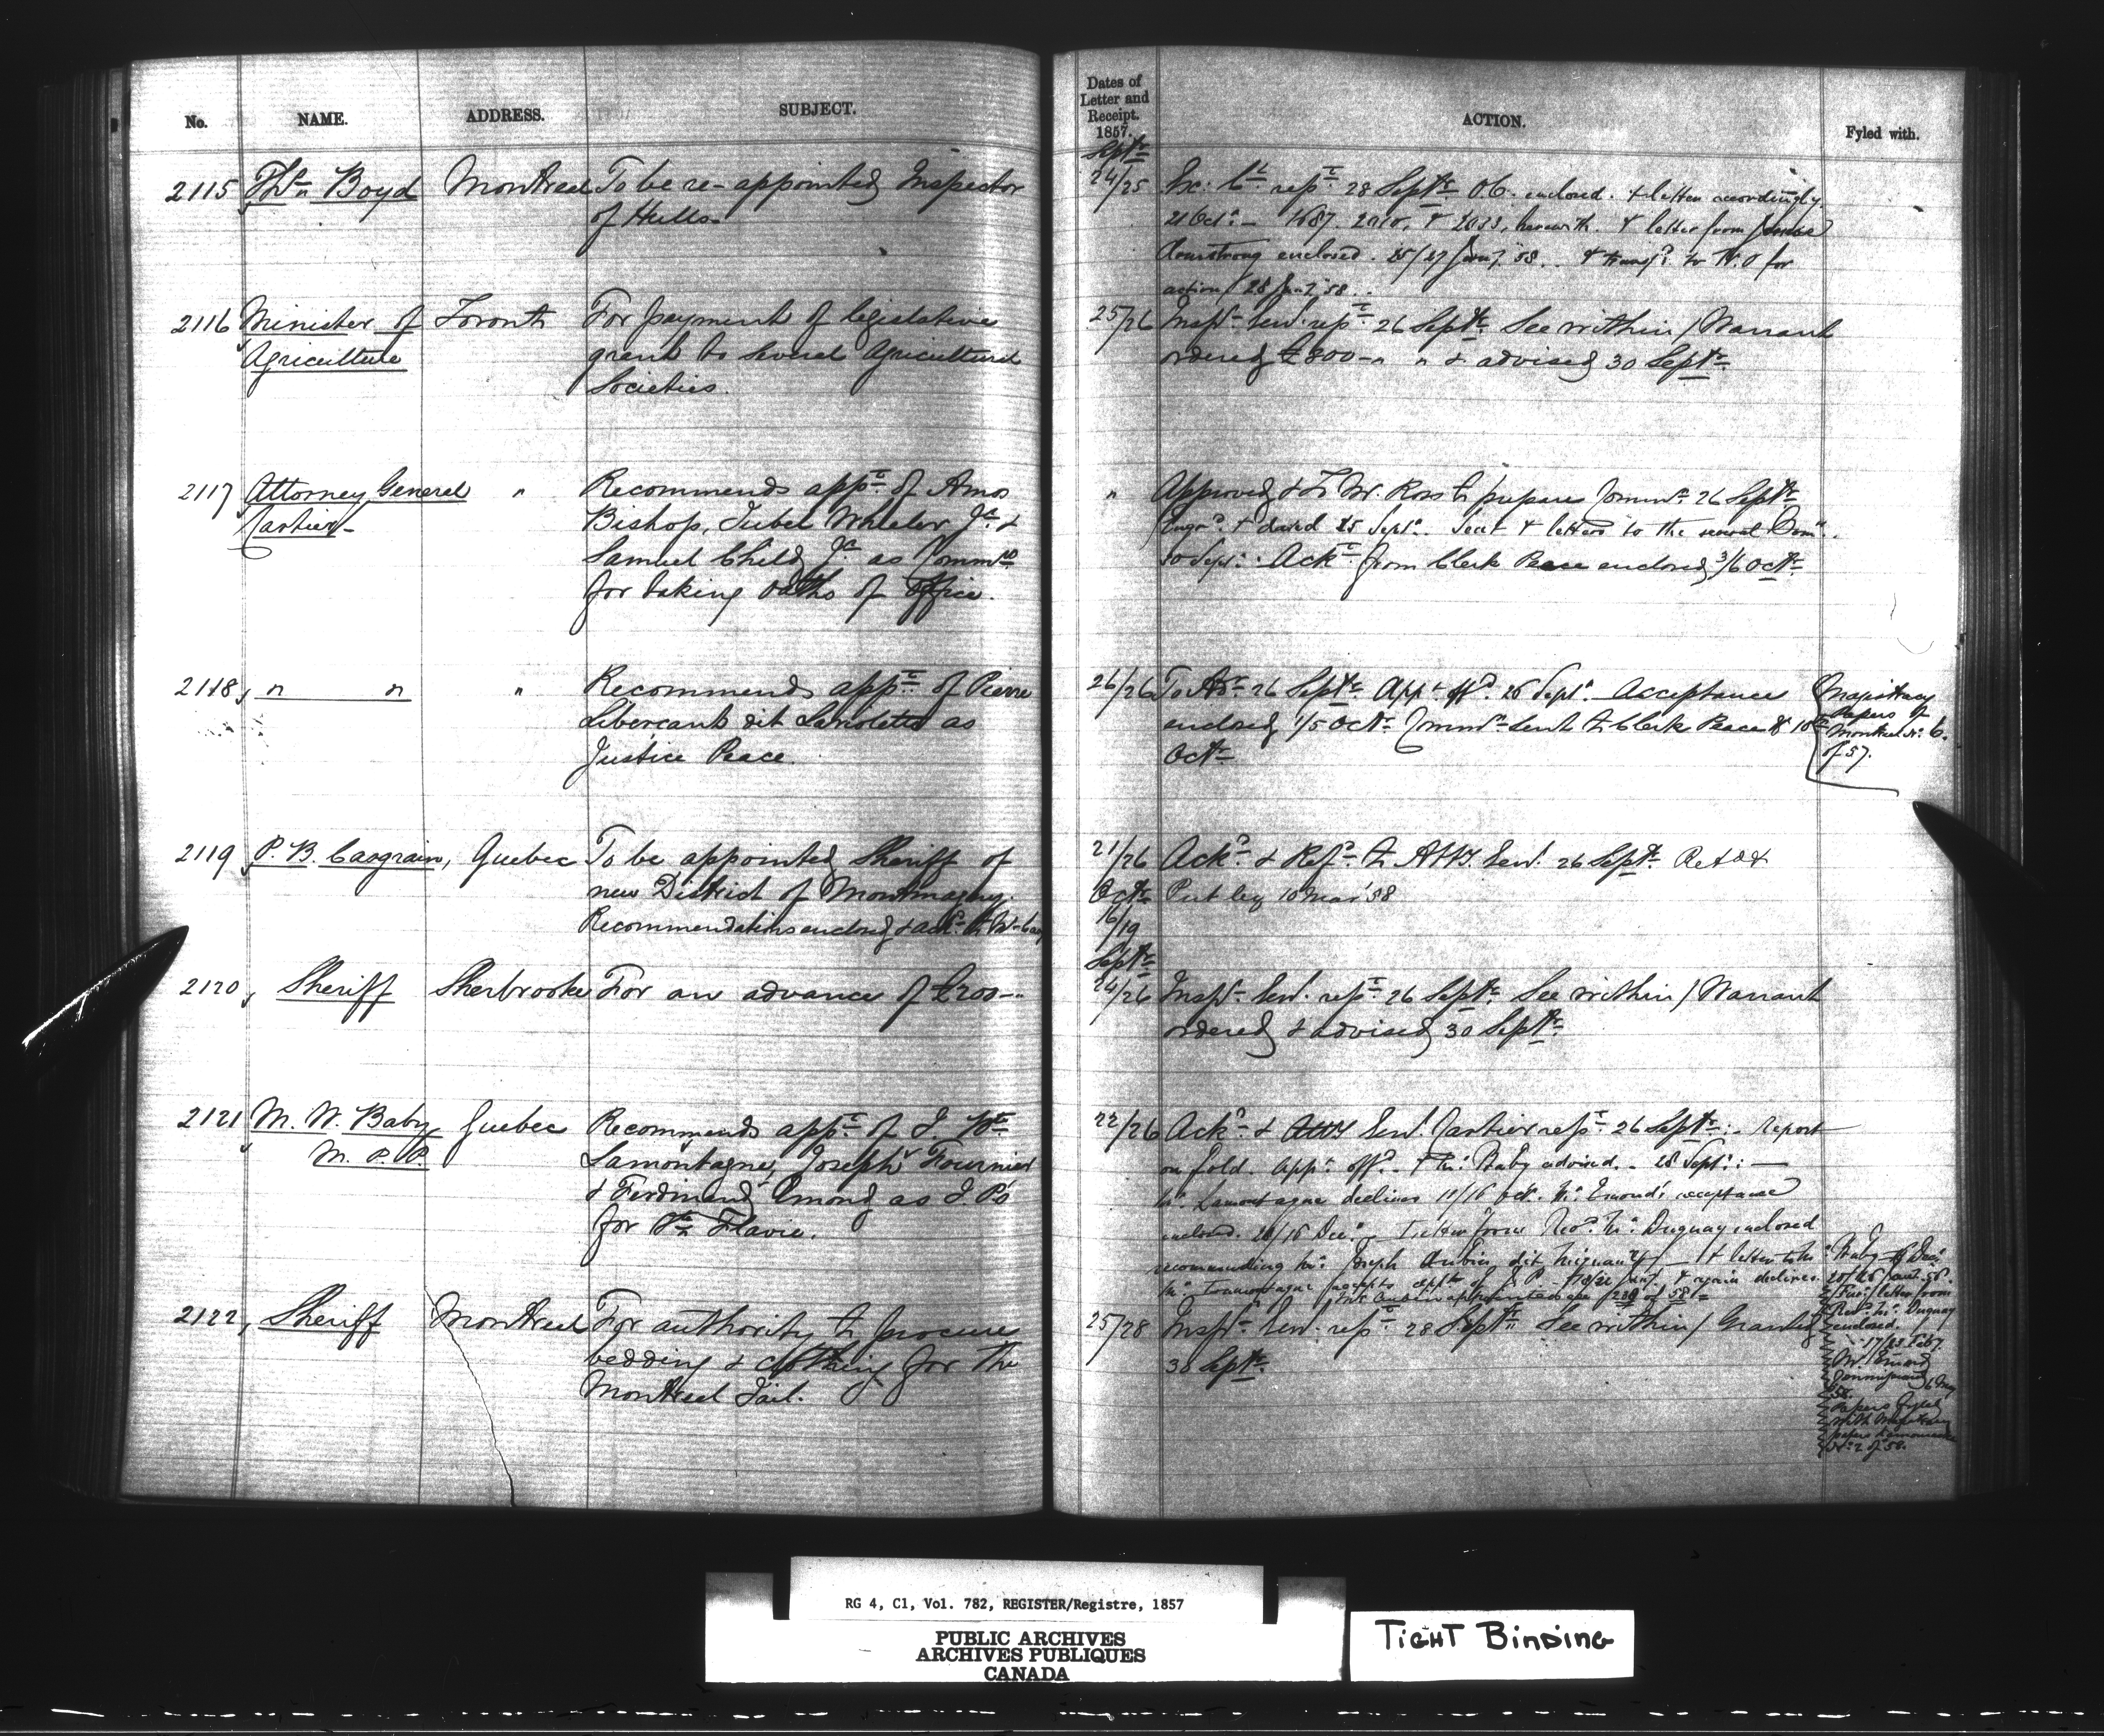 No.
NAME.
ADDRESS.
SUBJECT.
Dates of
Letter and
Receipt.
1857.
ACTION.
Fyled with.
Septr
2115 Thos Boyd Montreal To be re-appointed Inspector
of Hulls
24/25 Ex: Cl rept 28 Septr O.C. enclosed. & letter accordingly.
21 Octr.- 1687. herewith. & letter from
Armstrong enclosed. 25/27 Jany '58. & transfd to P.O for
action / 28 Jany '58.
2116 Minister of Toronto For payment of legislative
Agriculture grant to several Agricultural
Societies.
25/26 Inspr Genl rept 26 Septr See within / Warrant
ordered £800 & advised 30 Septr
2117, Attorney General " Recommends appt of Amos
Cartier Bishop, Tubel Wheeler Jr &
Samuel Child Jr as Commrs
for taking oaths of office.
" Approved & To Mr. Ross to prepare Commn 26 Septr
Engrd & dated 25 Septr. Sent & letters to the several Comrs.
30 Septr. Ackt from Clerk Peace enclosed 3/6 Octr
2118, " " " Recommends appt of Pierre
Libercent dit Laviolette as
Justice Peace.
26/26 26 Septr Appt offd. 26 Septr. Acceptance
enclosed 1/5 Octr. Commn sent to Clerk Peace 10
Octr
Magistracy
Papers of
Montreal No. 6.
of 57.
2119, P. B. Casgrain, Quebec To be appointed Sheriff of
new District of Montmagny.
Recommendations enclosed & ackd to
21/26 Ackd & Refd to Atty. Genl. 26 Septr Retd &
Octr Put by 10 Mar '58
16/19
Septr
2120, Sheriff Sherbrooke For an advance of £200
24/26 Inspr Genl. rept 26 Septr See within / Warrant
ordered & advised 30 Septr
2121, M. W. Baby Quebec Recommends appt of J. Bte
M. P. P. Lamontagne, Joseph Fournier
& Ferdinand Emond as J. P's
for Ste Flavie.
22/26 Ackd & Atty Genl. Cartier rept 26 Septr. Report
on fold. Appt offd. & Mr. Baby advised. 28 Septr.
Mr. Lamontagne declines 12/16 Oct. Mr. Emond's acceptance
enclosed. 26/16 Dec. Letter from Revd. Mr. Duguay enclosed
recommending Mr. Joseph Aubin dit & letter to Mr. Baby
Mr. Lamontagne accepts appt of J. P. & again declines
Mr. Aubin appointed see 230 of 58
Jany. 58.
Fur. letter from
Revd. Mr. Duguay
enclosed.
17/23 Feby.
Mr. Emond
6 May
58.
Papers fyled
with Magistracy
papers Kamouraska
No. 2 of 58.
2122, Sheriff Montreal For authority to procure
bedding & clothing for the
Montreal Jail.
25/28 Inspr Genl. rept 28 Septr See within / Granted
30 Septr
RG 4, C1, Vol. 782, REGISTER/Registre, 1857
PUBLIC ARCHIVES
ARCHIVES PUBLIQUES
CANADA
TIGHT BINDING